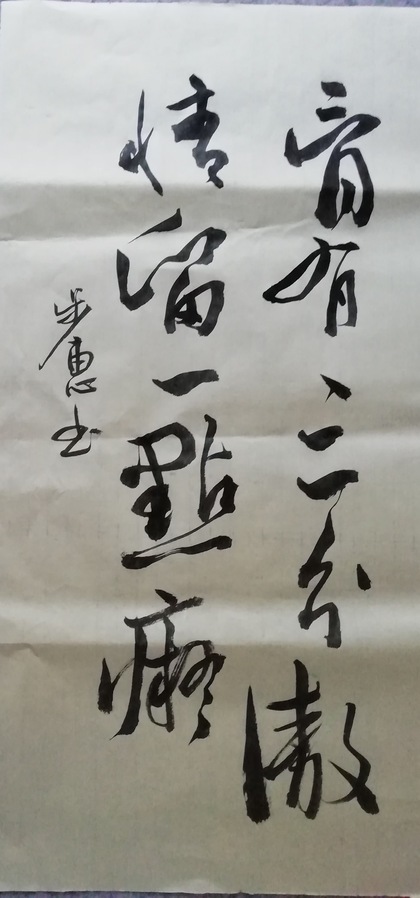 骨有三分傲
情留一點癡
步惠书